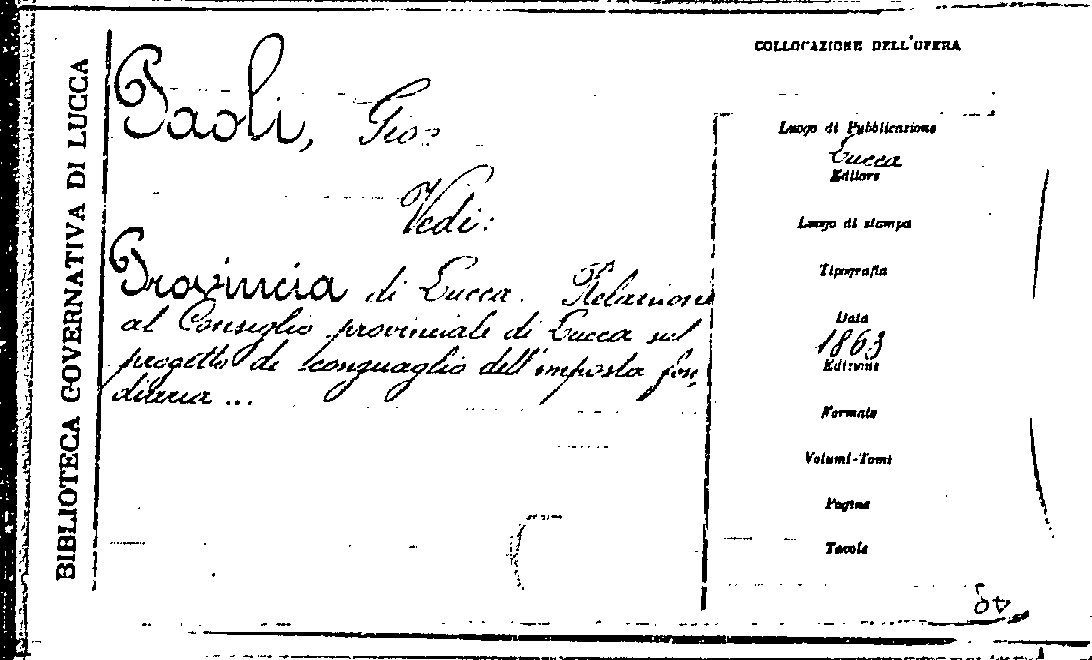 BIBLIOTECA GOVERNATIVA DI LUCCA
COLLOCAZIONE DELL'OPERA
Paoli, Gio:
Vedi:
Provincia di Lucca. Relazione
al Consiglio provinciale di Lucca sul
progetto di conguaglio dell'imposta fon-
diaria ...
Luogo di Pubblicazione
Lucca
Editore
Luogo di stampa
Tipografia
Data
1863
Edizione
Formato
Volumi-Tomi
Pagine
Tavole